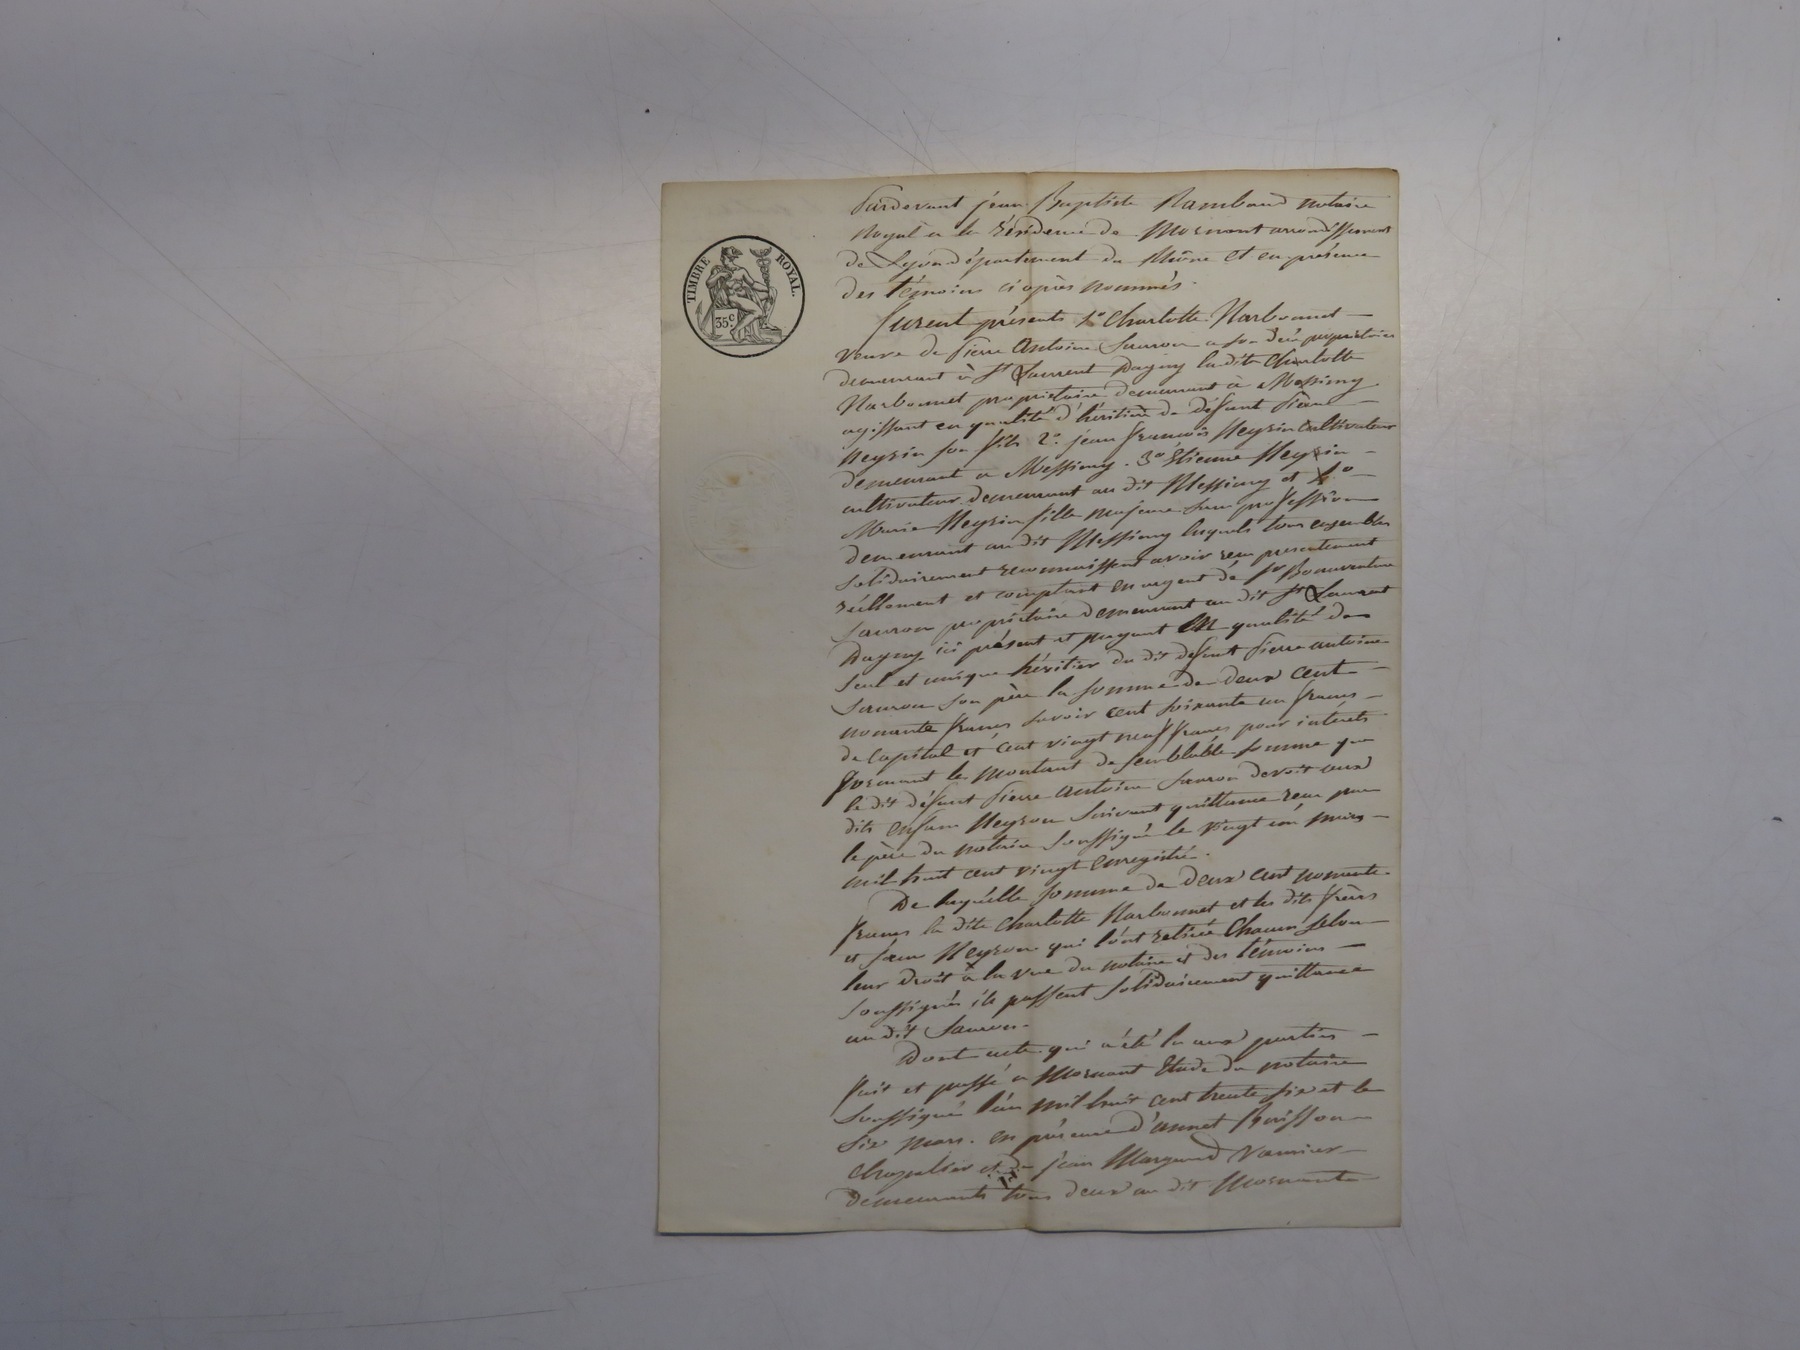 TIMBRE ROYAL.
35 c.
Pardevant jean Baptiste Rambaud notaire
Royal a la Résidence de Mornant arrondissement
de Lyon département du Rhône et en présence
des témoins ci après nommés.
furent présents 1° Charlotte Narbonnet
veuve de Pierre Antoine Sauron a son décé propriétaire
demeurant à St Laurent Dagny la dite Charlotte
Narbonnet propriétaire demeurant à Messimy
agissant en qualité d'héritière de défunt Pierre
Neyrin son fils 2°. jean françois Neyrin Cultivateur
demeurant a Messimy. 3° Etienne Neyrin
cultivateur demeurant au dit Messimy et 4°
Marie Neyrin fille majeure sans profession
demeurant au dit Messimy lequels tous ensembles
solidairement reconnaissent avoir reçu presentement
réellement et comptant en argent de Sr Bonaventure
Sauron propriétaire demeurant au dit St Laurent
Dagny ici présent et payant en qualité de
seul et unique héritier du dit defunt Pierre antoine
Sauron son père la somme de deux cent
nonante francs savoir cent soixante un francs
de Capital et cent vingt neuf francs pour intérêts
formant le montant de semblable somme que
le dit défunt Pierre Antoine Sauron devoit aux
dits enfans Neyron suivant quittance reçu par
le père du notaire soussigné le vingt cinq mars
mil huit cent vingt Enregistré.
De laquelle somme de deux cent nonante
francs la dite Charlotte Narbonnet et les dits frères
et sœur Neyron qui l'ont retirée Chacun selon
leur droit à la vue du notaire et des témoins
soussignés ils passent solidairement quittance
au dit Sauron.
Dont acte qui a été lu aux parties
fait et passé a Mornant Etude du notaire
soussigné l'an mil huit cent trente six et le
six mars. en présence d'annet Buisson
Chapelier et de jean Margand Vannier
demeurants tous deux au dit Mornant